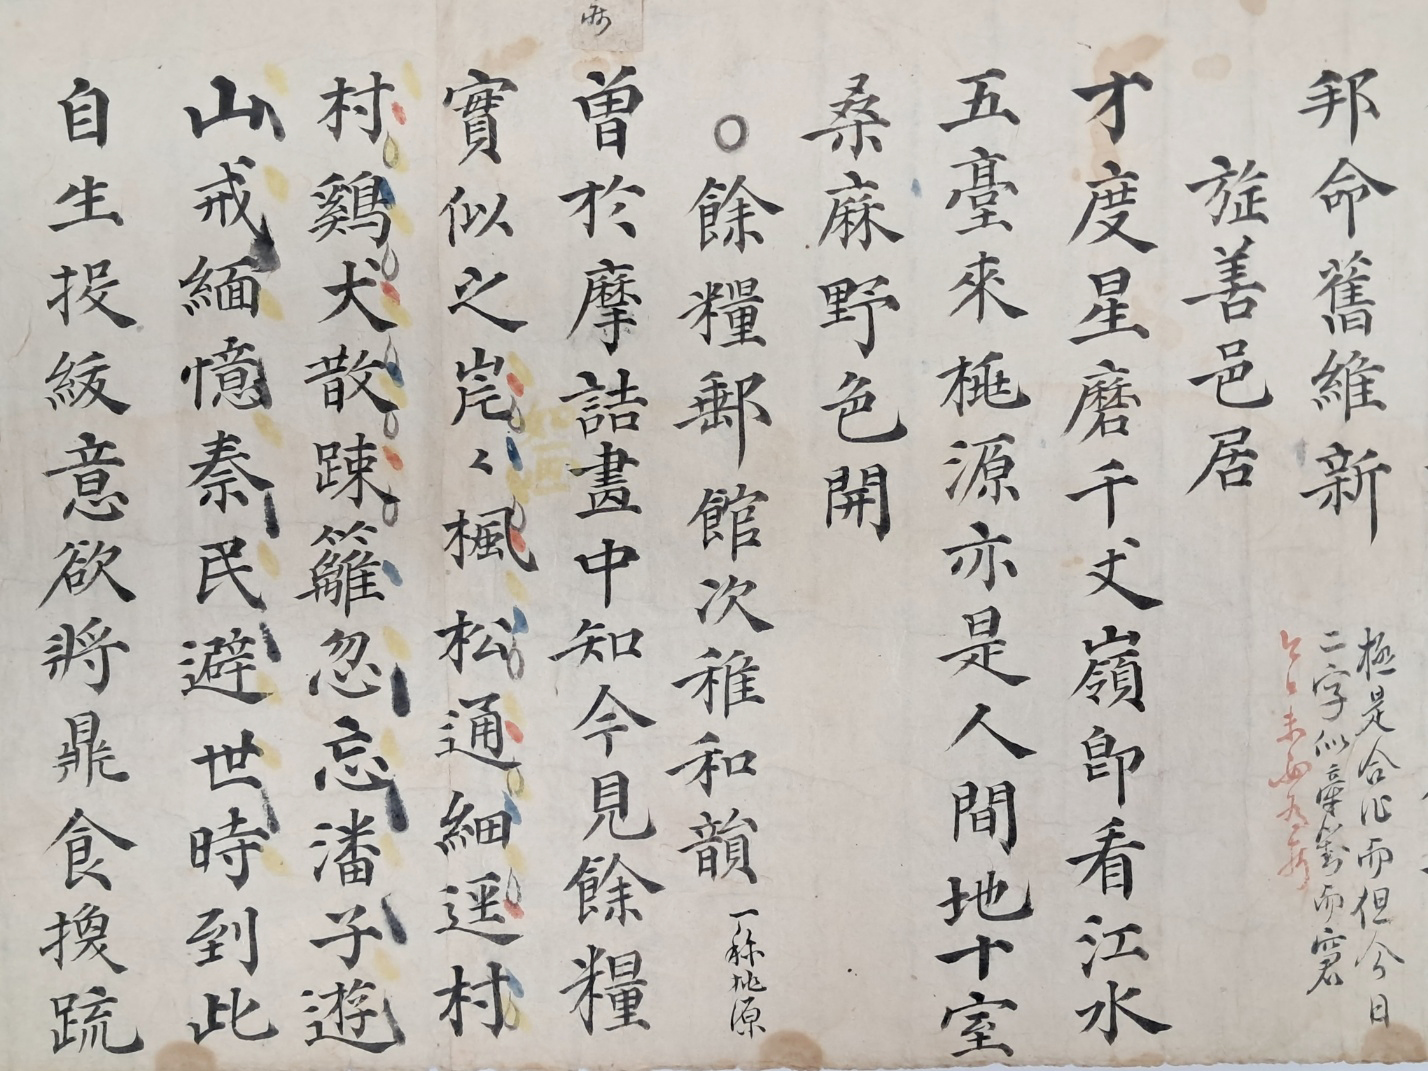 邦命舊維新
極是合作而但今日
二字似牽對而窘
旋善邑居
才度星磨千丈嶺卽看江水
五臺來桃源亦是人間地十室
桑麻野色開
○餘糧郵館次稚和韻 一称桃源
曽於摩詰畫中知今見餘糧
實似之岸〻楓松通細逕村
村鷄犬散踈籬忽忘潘子遊
山戒緬憶秦民避世時到此
自生投紱意欲將鼎食換蔬